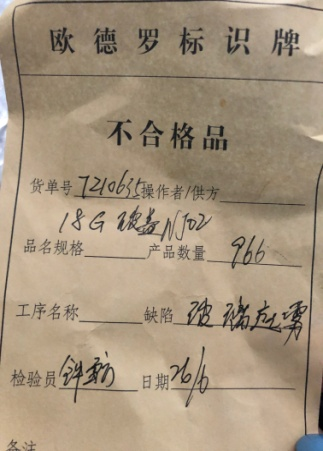 欧德罗标识牌
不合格品
货单号 7210635 操作者/供方
18G NJ02
品名规格 产品数量 966
工序名称 缺陷 玻璃
检验员 日期 26/6
备注